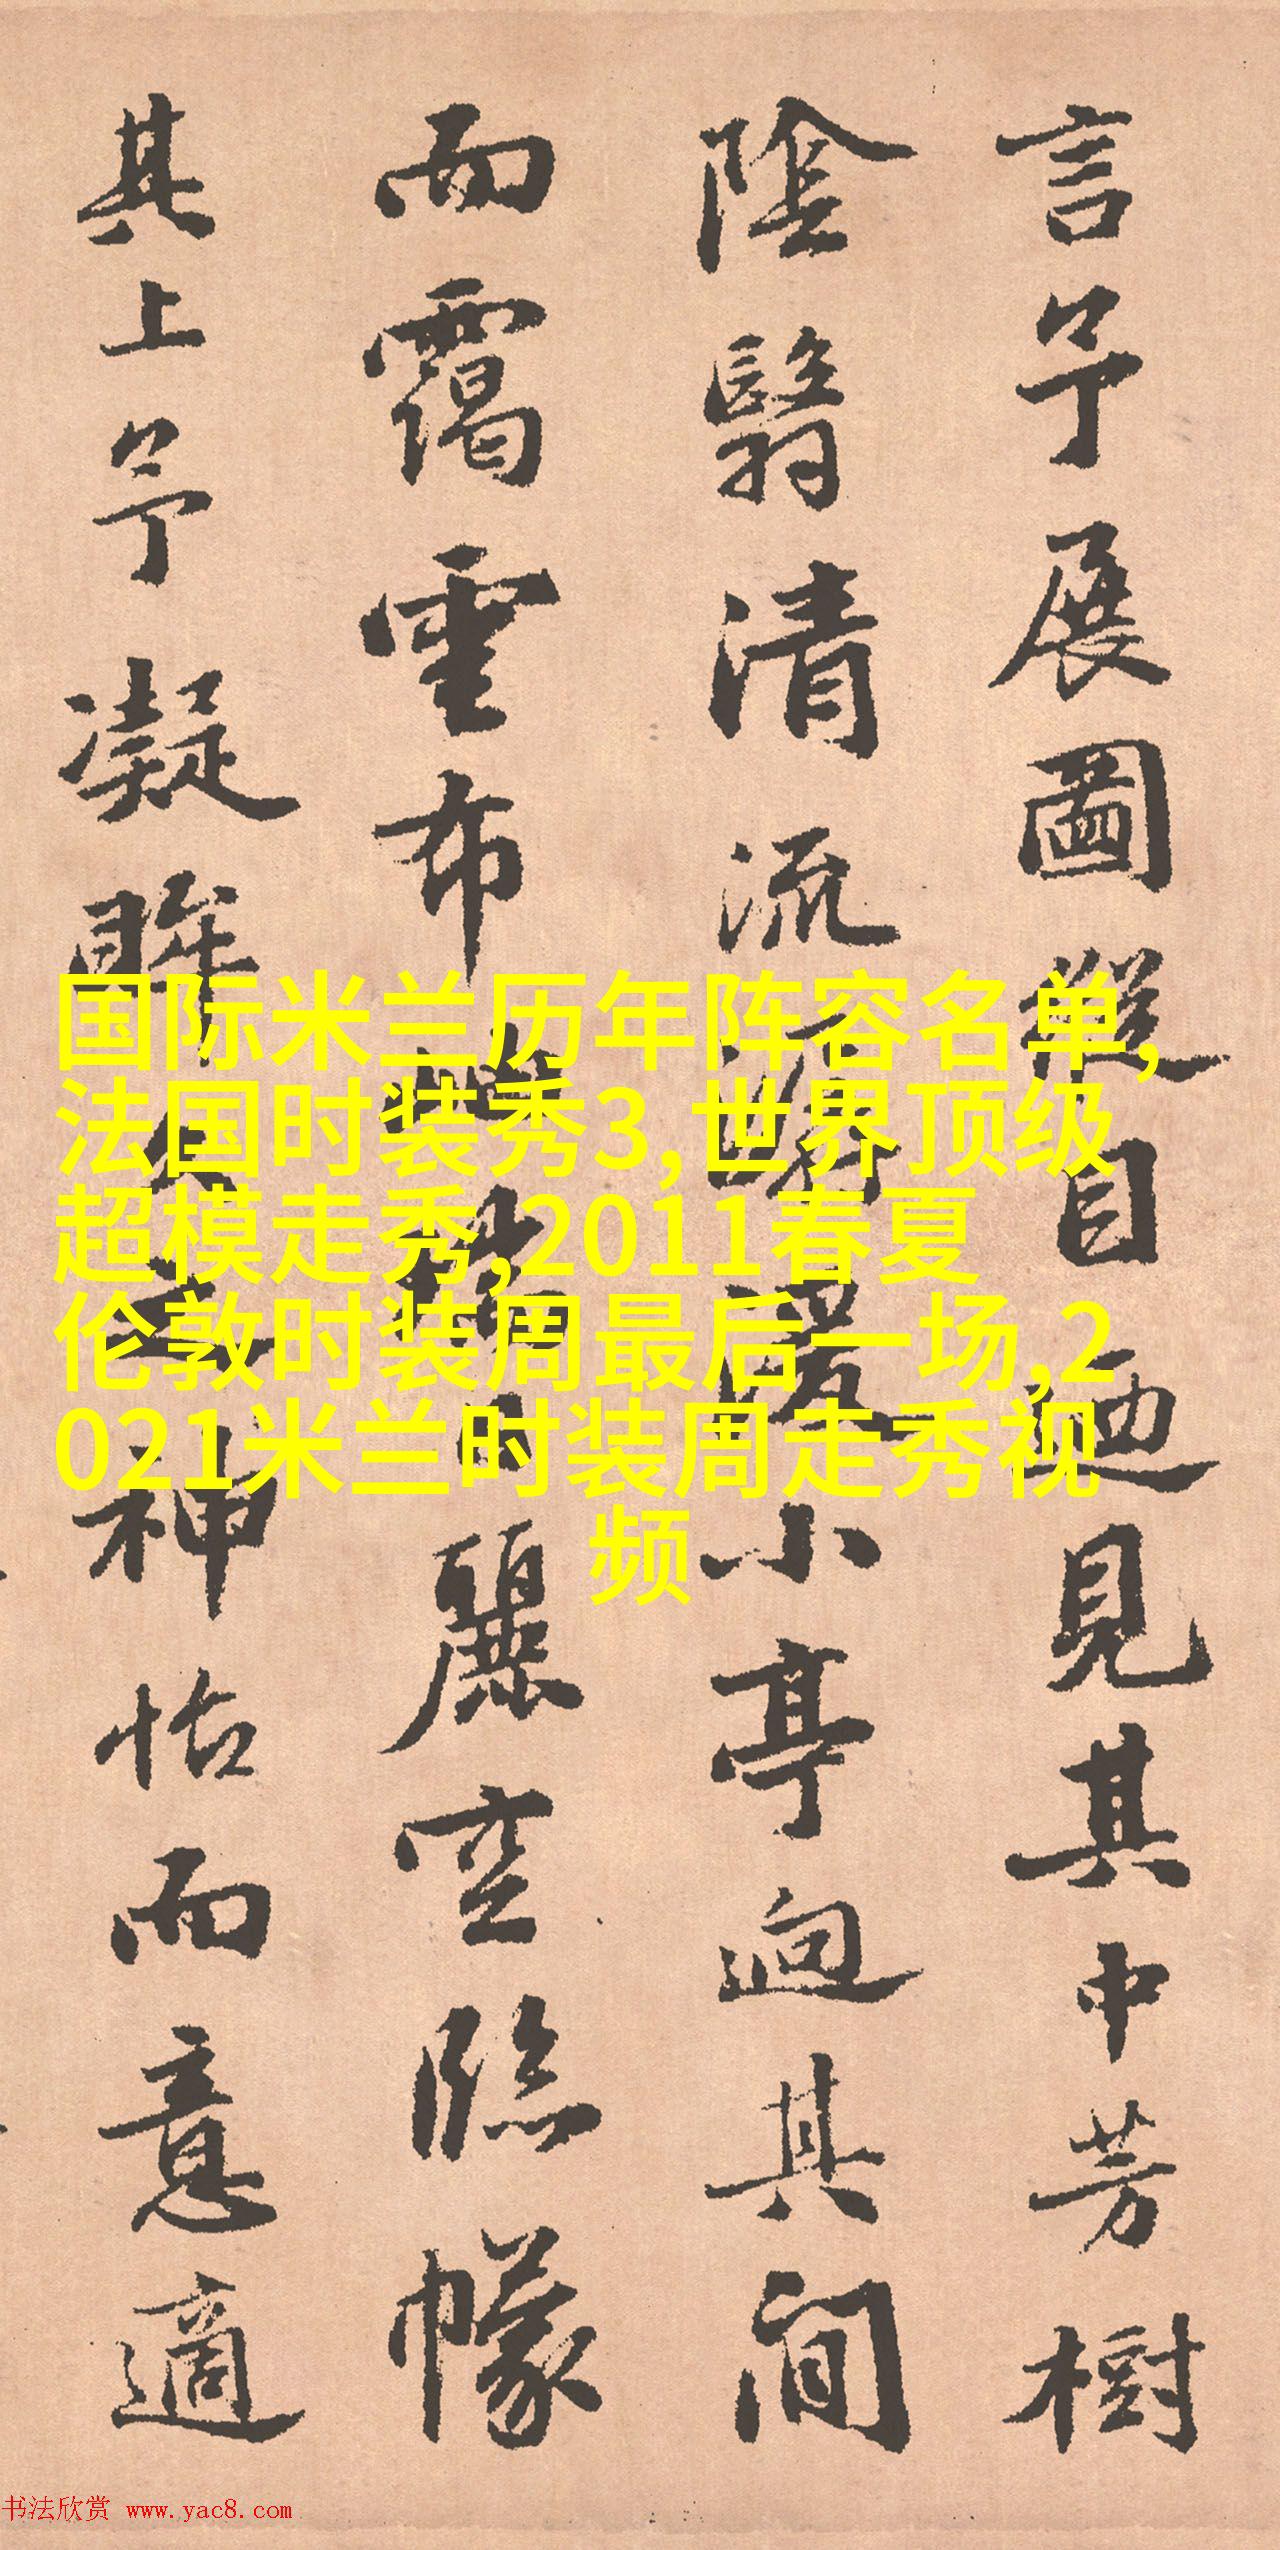 言予展圖縱目廼見其中芳樹
陰翳清流潺湲小亭迴其間
而靄雲布地皜日麗空臨幪
其上予凝眸久之神怡而意適
国际米兰历年阵容名单,
法国时装秀3,世界顶级
超模走秀,2011春夏
伦敦时装周最后一场,2
021米兰时装周走秀视
频
书法欣赏 www.yac8.com